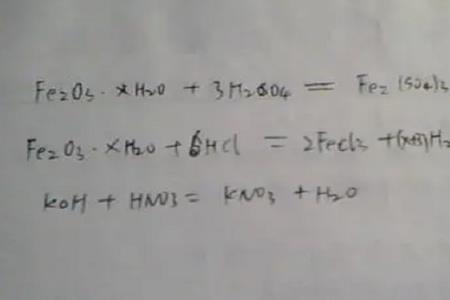 Fe2O3 · xH2O + 3H2SO4 = Fe2(SO4)3
Fe2O3 · xH2O + 6HCl = 2FeCl3 + (x+3)H2
KOH + HNO3 = KNO3 + H2O